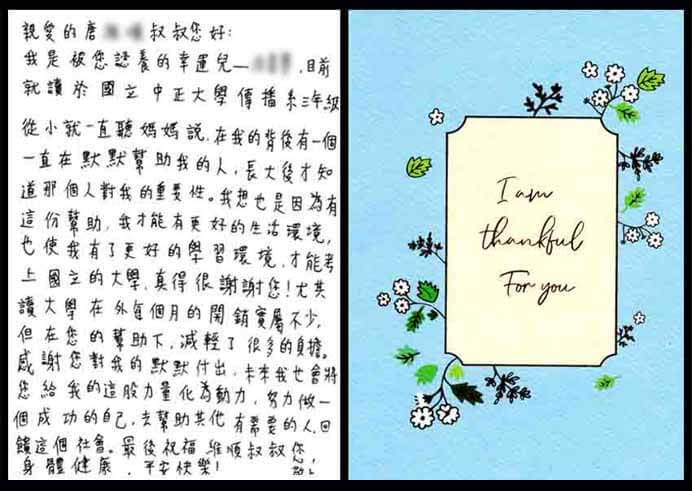 親愛的唐 叔叔您好：
我是被您認養的幸運兒— ，目前
就讀於國立中正大學傳播系三年級
從小就一直聽媽媽說，在我的背後有一個
一直在默默幫助我的人，長大後才知
道那個人對我的重要性。我想也是因為有
這份幫助，我才能有更好的生活環境，
也使我有了更好的學習環境，才能考
上國立的大學，真得很謝謝您！尤其
讀大學在外每個月的開銷實屬不少，
但在您的幫助下，減輕了很多的負擔。
感謝您對我的默默付出，未來我也會將
您給我的這股力量化為動力，努力做一
個成功的自己，去幫助其他有需要的人，回
饋這個社會。最後祝福維順叔叔您
身體健康，平安快樂！
I am
thankful
For you